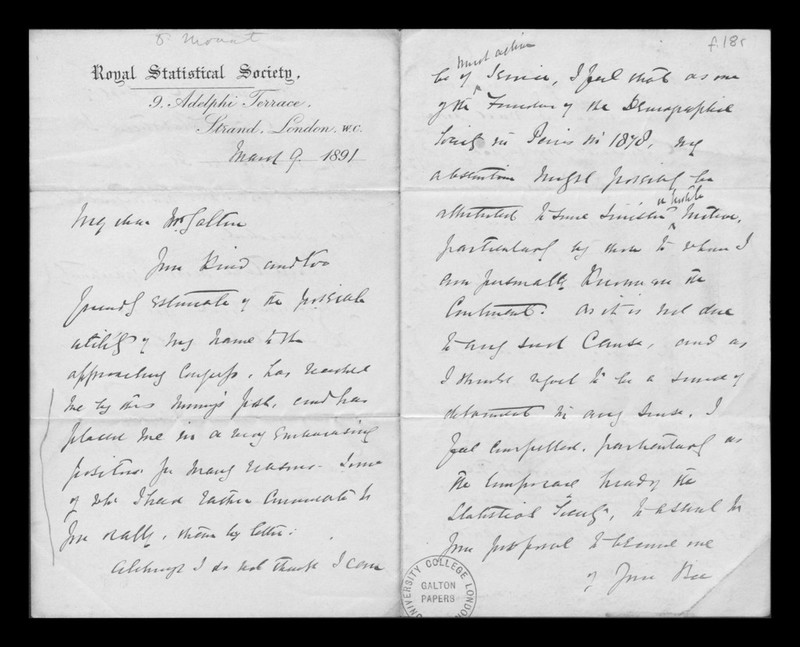 F. Mouat
Royal Statistical Society,
9, Adelphi Terrace,
Strand, London, W.C.
March 9 1891
My dear Mr Galton
Your kind and too
friendly estimate of the possible
utility of my name to the
approaching Congress, has reached
me by this morning's post, and has
placed me in a very embarrassing
position for many reasons. Some
of which I had rather enunciate to
you orally, than by letter.
Although I do not think I can
f.18r
be of much active service, I feel that as one
of the Founders of the Demographic
Society in Paris in 1878, my
abstention might possibly be
attributed to some sinister or hostile motive,
particularly by those to whom I
am personally known on the
Continent. As it is not due
to any such cause, and as
I should regret to be a source of
detriment in any sense, I
feel compelled, particularly as
the temporary head of the
Statistical Society, to assent to
your proposal to become one
of your
UNIVERSITY COLLEGE LONDON
GALTON
PAPERS